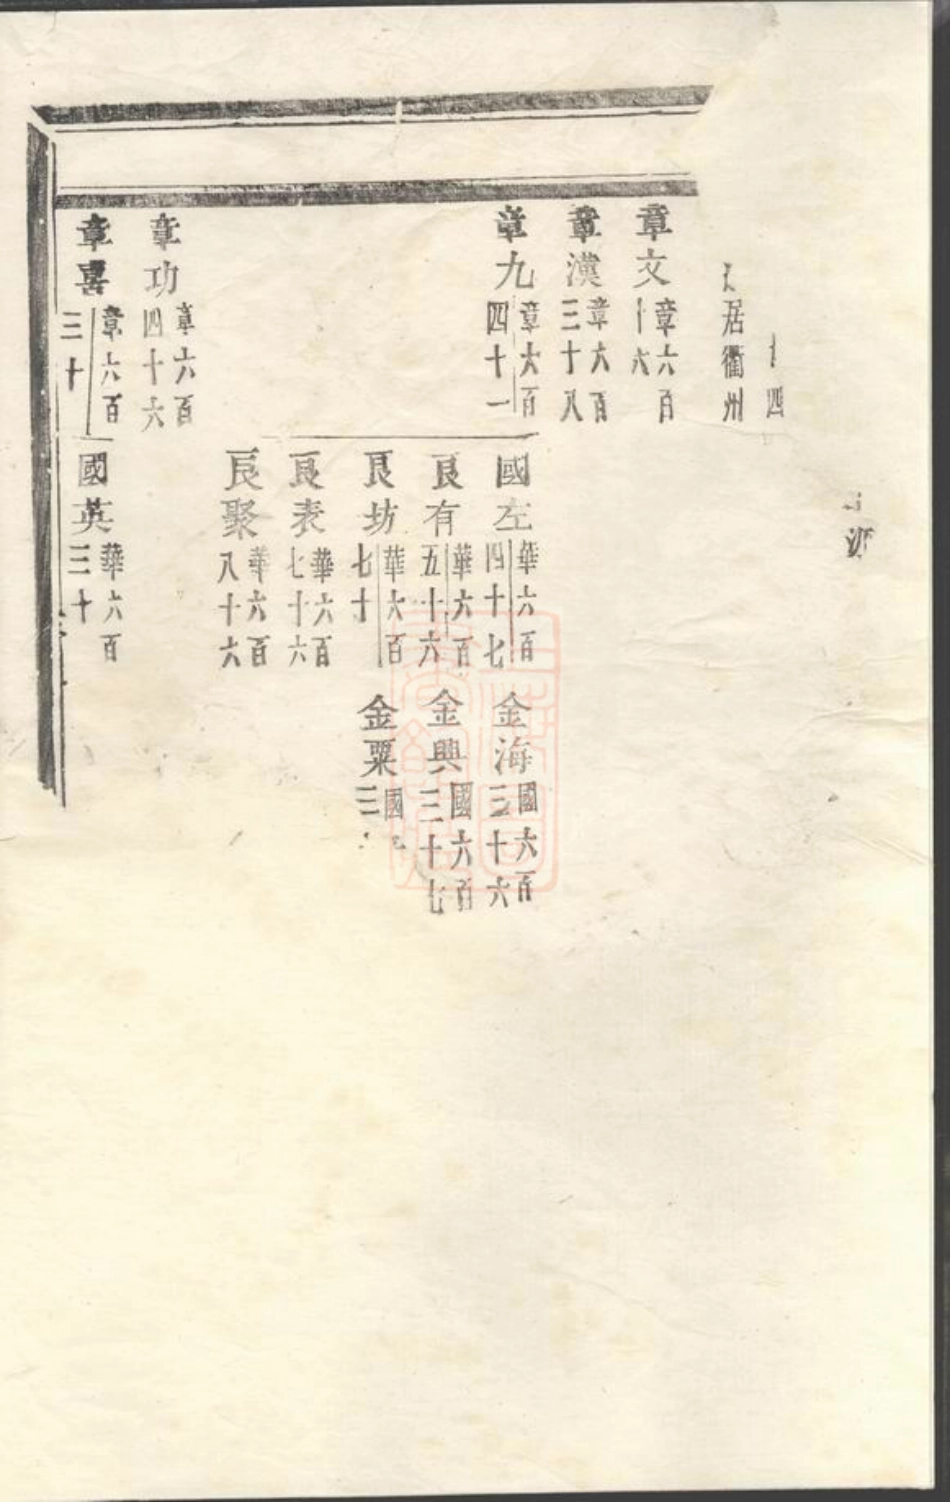 四
居衢州
章文 章六百十六
章漢 章六百三十八
章九 章六百四十一
國左 華六百四十七
金海 國六百三十六
良有 華六百五十六
金興 國六百三十七
良坊 華六百七十
金粟 國
良表 華六百七十六
良聚 華六百八十六
章功 章六百四十六
章喜 章六百三十
國英 華六百三十